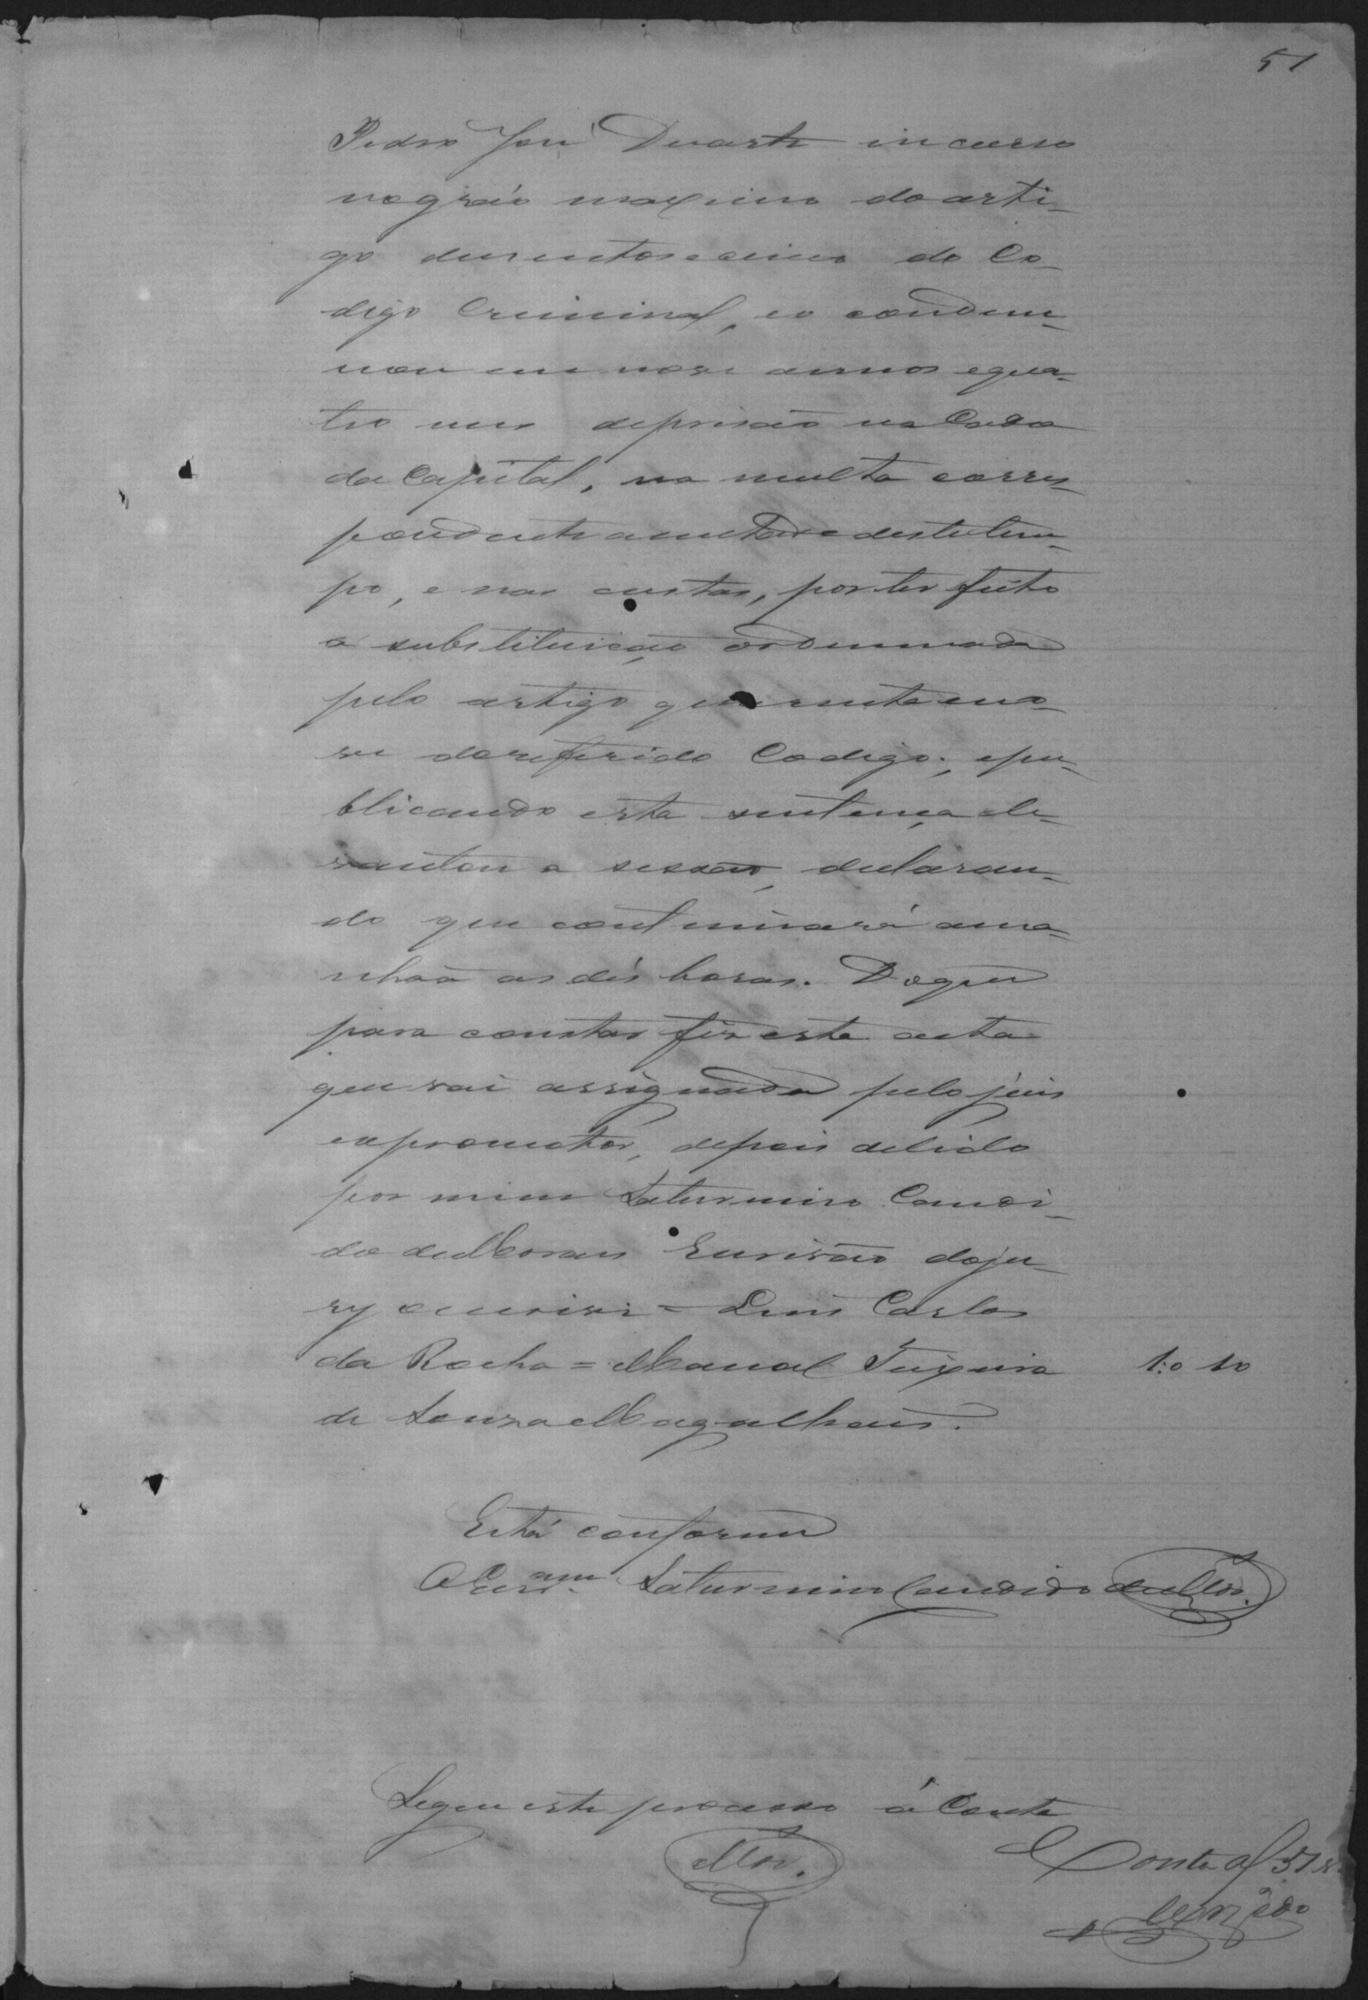 51
Pedro José Duarte incurso
no gráo maximo do arti-
go dusentos e cinco do Co-
digo Criminal, e o condem-
nou em nove annos e qua-
tro mes de prisão na Cadea
da Capital, na multa corres-
pondente a metade deste tem-
po, e nas custas, por ter feito
a substituição ordennada
pelo artigo quarenta e no-
ve do referido Codigo; e pu-
blicando esta sentença le-
vantou a sessão, declaran-
do que continuará ama-
nhaã as dés horas. Do que
para constar fiz este acta
que vai assignada pelo juis
e o promotor, depois de lido
por mim Saturnino Candi-
do de Moraes Escrivão do ju-
ry o escrivi = Luis Carlos
da Rocha = Manoel Teixeira
1:0 10
de Souza Magalhaes.
Está conforme
O Escr.am Saturnino Candido de Mor.
Segue este processo á Conta
Mor.
Conta af 51